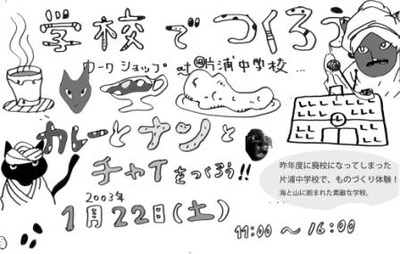 学校でつくろう
ワークショップ at 旧片浦中学校...
カレーとナンと
チャイをつくろう!!
昨年度に廃校になってしまった
片浦中学校で、ものづくり体験!
海と山に囲まれた素敵な学校。
2003年
1月22日(土)
11:00 〜 16:00